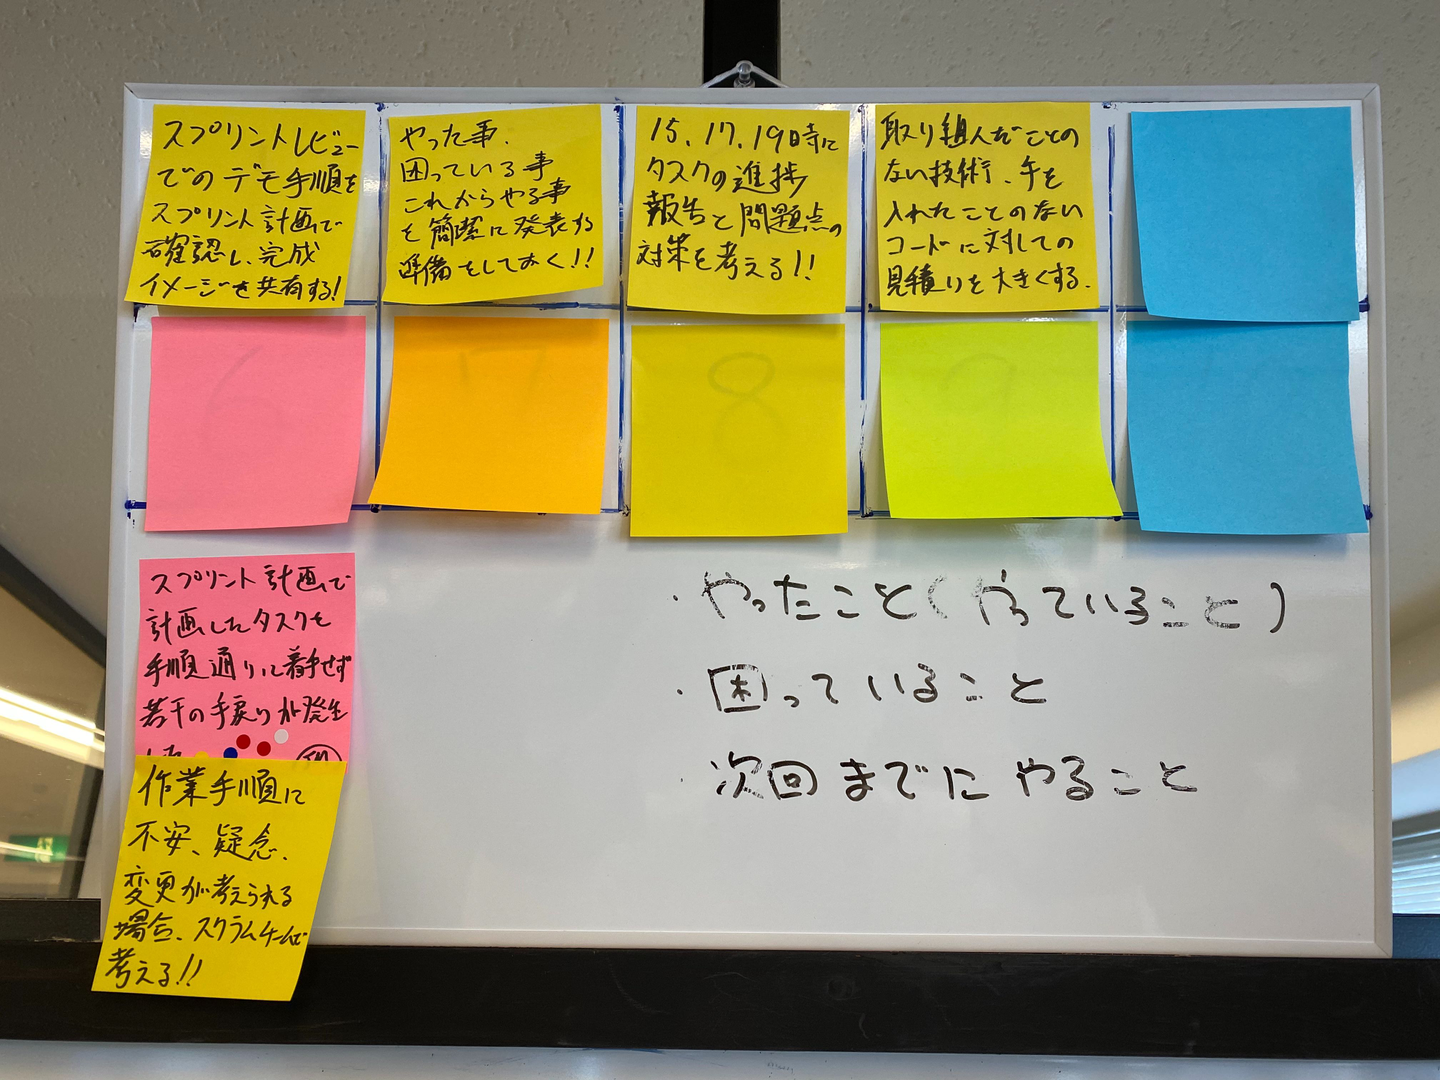 スプリントレビュー
でのデモ手順を
スプリント計画で
確認し、完成
イメージを共有する!
やった事、
困っている事
これからやる事
を簡潔に発表する
準備をしておく!!
15、17、19時に
タスクの進捗
報告と問題点の
対策を考える!!
取り組んだことの
ない技術、手を
入れたことのない
コードに対しての
見積りを大きくする.
6
7
8
9
スプリント計画で
計画したタスクを
手順通りに着手せず
若干の手戻りが発生
した
作業手順に
不安、疑念、
変更が考えられる
場合、スクラムチームで
考える!!
・やったこと(やっていること)
・困っていること
・次回までにやること